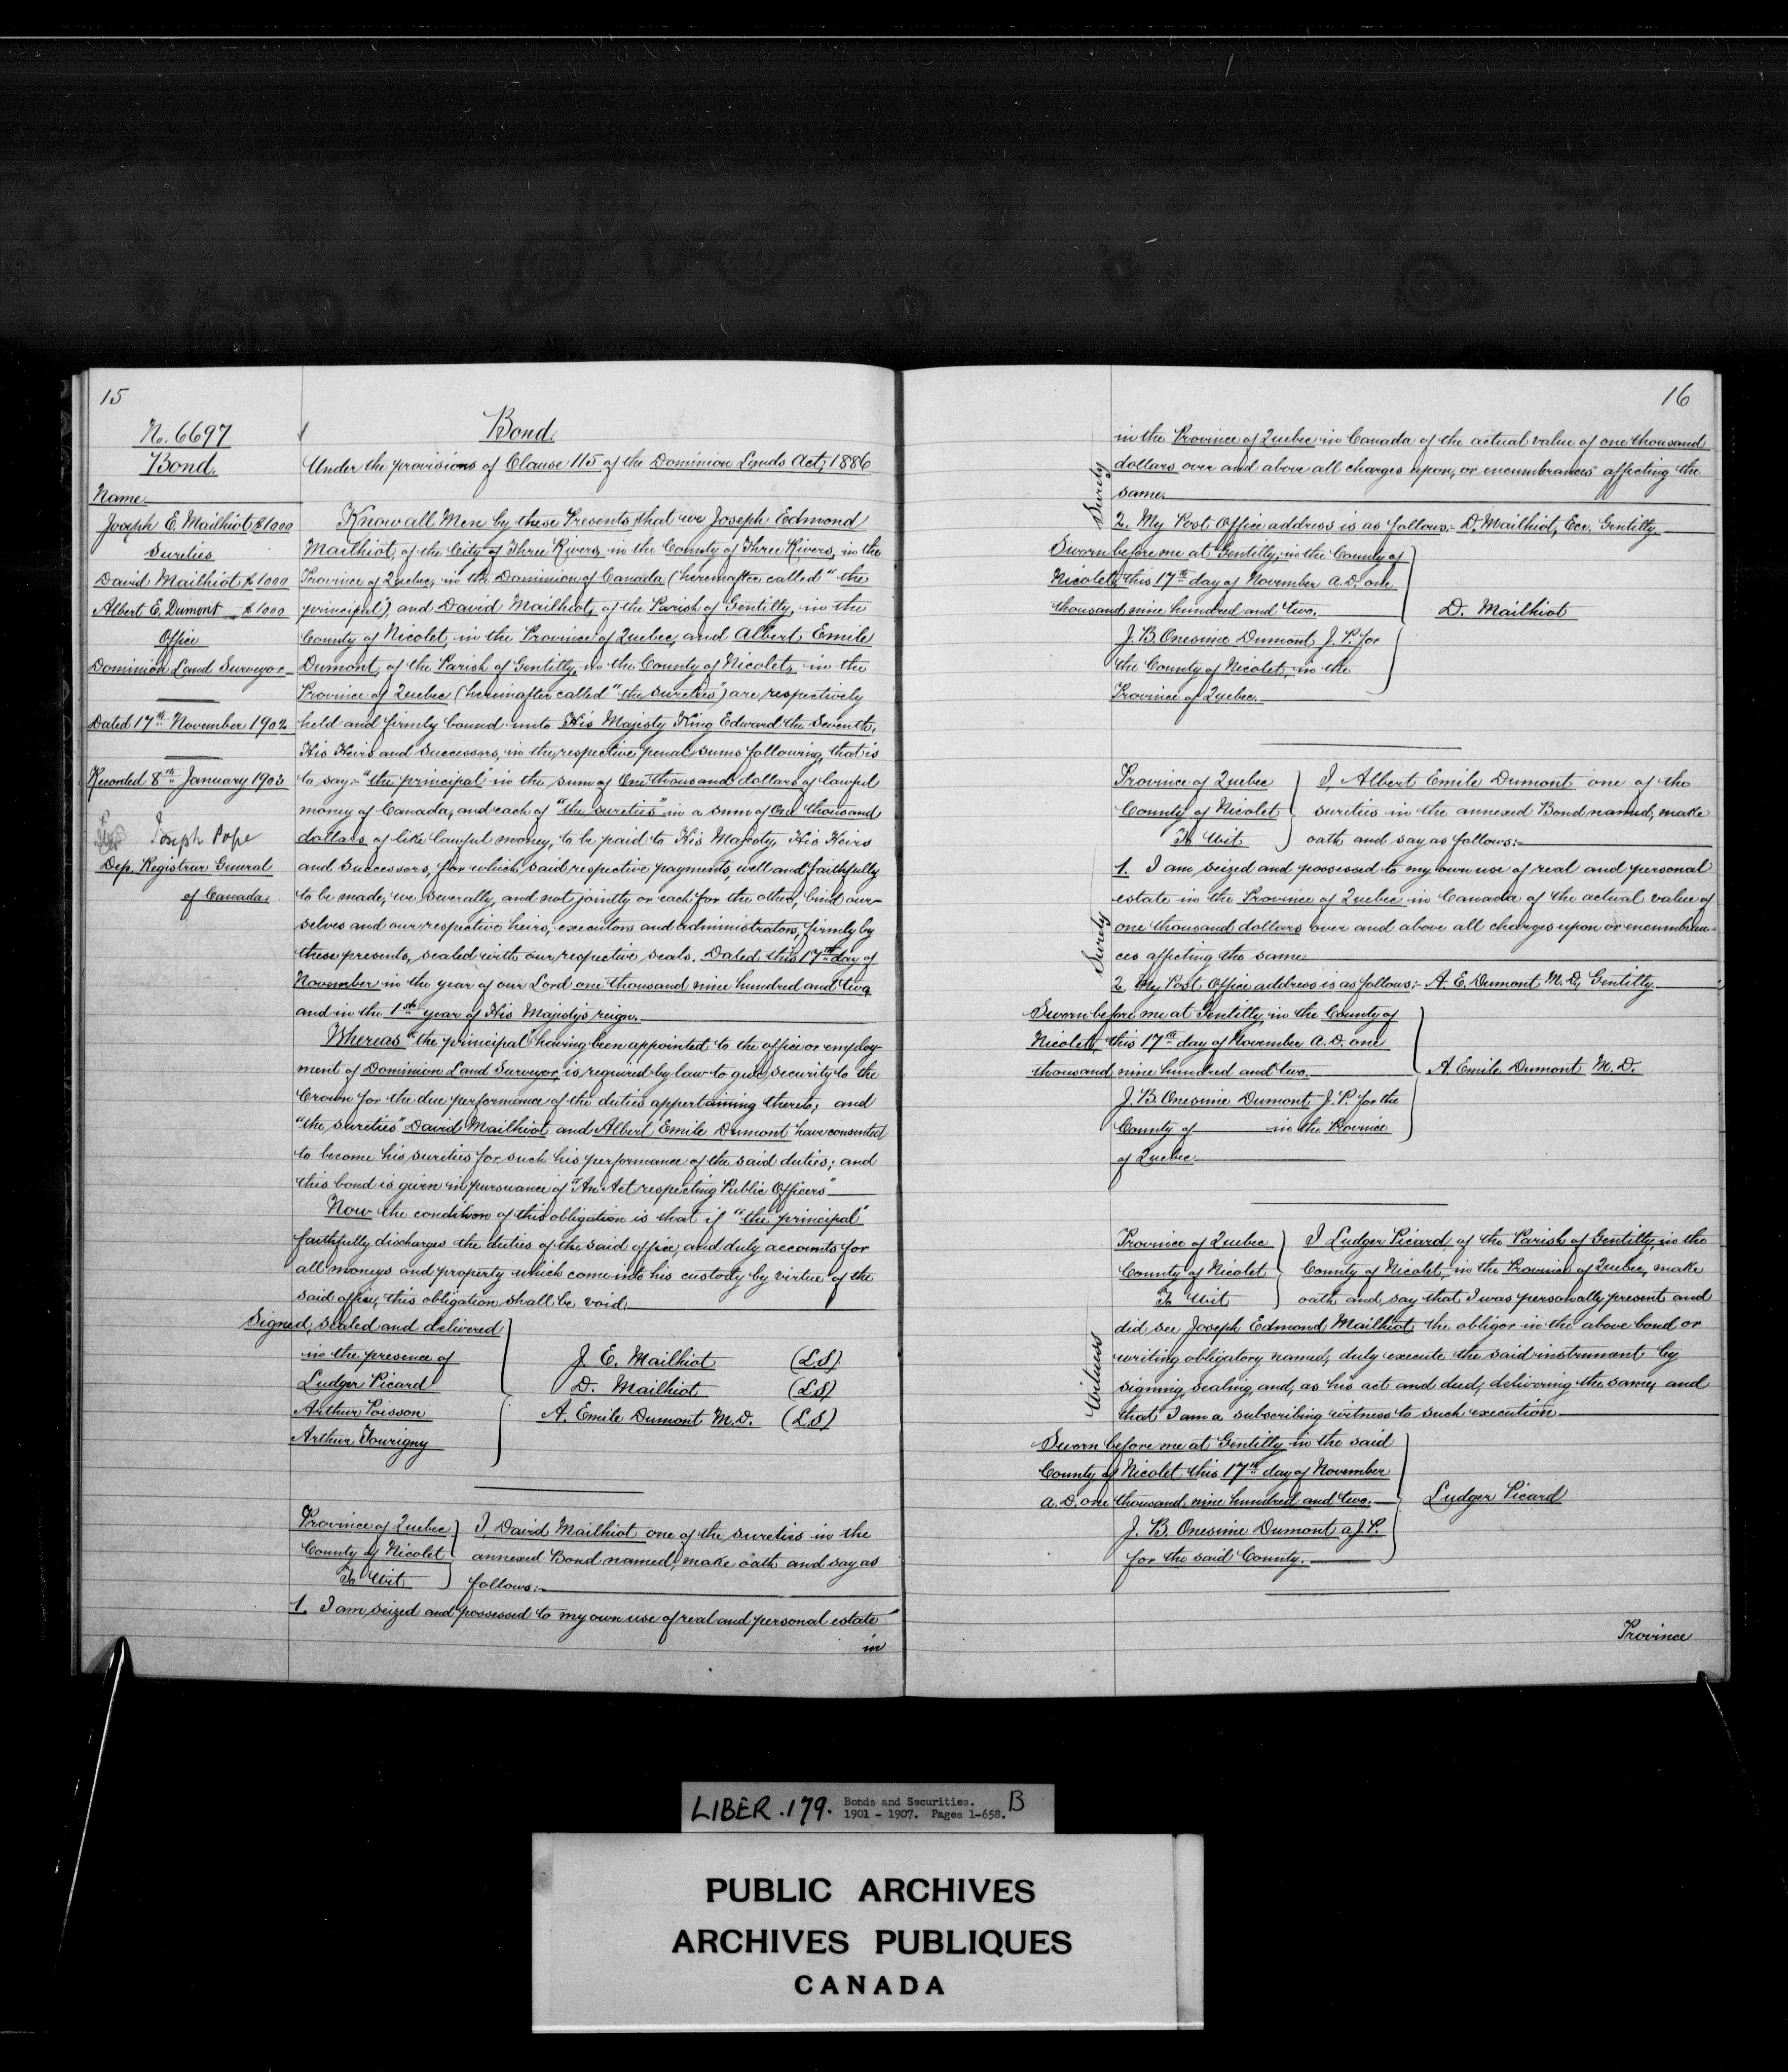 15
No. 6697
Bond.
Name
Joseph E. Mailhiot, $1000
Sureties
David Mailhiot $1000
Albert E. Dumont $1000
Office
Dominion Land Surveyor
Dated 17th November 1902
Recorded 8th January 1903
Joseph Pope
Dep. Registrar General
of Canada.
Bond.
Under the provisions of Clause 115 of the Dominion Lands Act, 1886
Know all Men by these Presents, that we Joseph Edmond
Mailhiot, of the City of Three Rivers, in the County of Three Rivers, in the
Province of Quebec, in the Dominion of Canada (hereinafter called "the
principal"), and David Mailhiot, of the Parish of Gentilly, in the
County of Nicolet, in the Province of Quebec, and Albert Emile
Dumont, of the Parish of Gentilly, in the County of Nicolet, in the
Province of Quebec (hereinafter called "the sureties") are respectively
held and firmly bound unto His Majesty King Edward the Seventh,
His Heirs and Successors, in the respective penal sums following, that is
to say:- "the principal" in the sum of One thousand dollars of lawful
money of Canada, and each of "the sureties" in a sum of One thousand
dollars of like lawful money, to be paid to His Majesty, His Heirs
and Successors, for which said respective payments, well and faithfully
to be made, we severally, and not jointly or each for the other, bind our-
selves and our respective heirs, executors and administrators, firmly by
these presents, sealed with our respective seals. Dated this 17th day of
November in the year of our Lord one thousand nine hundred and two
and in the 1st year of His Majesty's reign.
Whereas "the principal" having been appointed to the office or employ-
ment of Dominion Land Surveyor, is required by law to give security to the
Crown for the due performance of the duties appertaining thereto; and
"the sureties" David Mailhiot and Albert Emile Dumont have consented
to become his sureties for such his performance of the said duties; and
this bond is given in pursuance of "An Act respecting Public Officers"
Now the condition of this obligation is that if "the principal"
faithfully discharges the duties of the said office, and duly accounts for
all moneys and property which come into his custody by virtue of the
said office, this obligation shall be void.
Signed, sealed and delivered
in the presence of
Ludger Picard
Arthur Poisson
Arthur Tourigny
J. E. Mailhiot (LS)
D. Mailhiot (LS)
A. Emile Dumont M.D. (LS)
Province of Quebec
County of Nicolet
To Wit
I, David Mailhiot one of the sureties in the
annexed Bond named, make oath and say as
follows:-
1. I am seized and possessed to my own use of real and personal estate
in
16
in the Province of Quebec in Canada of the actual value of one thousand
dollars over and above all charges upon, or encumbrances affecting the
same.
Surety
2. My Post Office address is as follows:- D. Mailhiot, Ecr. Gentilly.
Sworn before me at Gentilly, in the County of
Nicolet, this 17th day of November A.D. one
thousand nine hundred and two.
D. Mailhiot
J. B. Onesime Dumont J. P. for
the County of Nicolet, in the
Province of Quebec.
Province of Quebec
County of Nicolet
To Wit
I, Albert Emile Dumont one of the
sureties in the annexed Bond named, make
oath and say as follows:-
1. I am seized and possessed to my own use of real and personal
estate in the Province of Quebec in Canada of the actual value of
one thousand dollars over and above all charges upon or encumbran-
ces affecting the same
Surety
2. My Post Office address is as follows:- A. E. Dumont M. D, Gentilly.
Sworn before me at Gentilly, in the County of
Nicolet, this 17th day of November A. D. one
thousand nine hundred and two.
A. Emile Dumont M. D.
J. B. Onesime Dumont J. P. for the
County of in the Province
of Quebec.
Province of Quebec
County of Nicolet
To Wit
I Ludger Picard, of the Parish of Gentilly, in the
County of Nicolet, in the Province of Quebec, make
oath and say that I was personally present and
did see Joseph Edmond Mailhiot, the obligor in the above bond or
writing obligatory named, duly execute the said instrument by
signing, sealing, and, as his act and deed, delivering the same, and
that I am a subscribing witness to such execution
Witness
Sworn before me at Gentilly in the said
County of Nicolet this 17th day of November
A. D. one thousand nine hundred and two.
Ludger Picard
J. B. Onesime Dumont a J. P.
for the said County.
Province
LIBER .179. Bonds and Securities.
1901 - 1907. Pages 1-658. B
PUBLIC ARCHIVES
ARCHIVES PUBLIQUES
CANADA